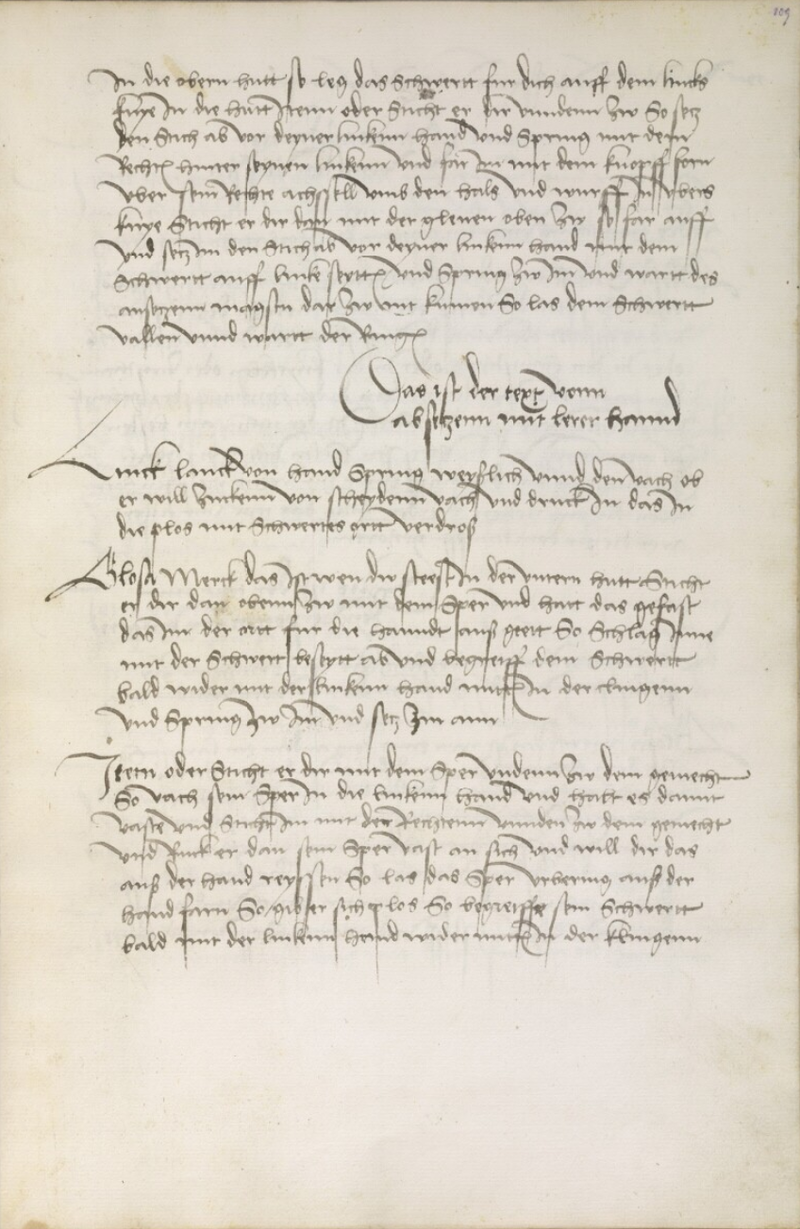 109
In die obern hutt so leg das Schwertt fur dich auff dem lincks
knye In die hutt Item oder Sticht er dir unndenn zw So setz
den Stich ab vor deyner linckenn hand Vnd Spring mit dem
Rechtn hinter seynen linckenn Vnd far Im mit dem knopff forn
Vber sein Rechte achsell vmb den hals Vnd wurff In vbers
knye Sticht er dir dan mit der glenen oben zw so far auff
Vnd setz Im den Stich ab vor deyner linckenn hand mit dem
Schwertt auff lincke seyttn Vnd Spring zw Im Vnd wartt des
ansetzenn magstu dar zw nit kumen So las dem Schwertt
vallen Vnnd wartt der Ringn
Das ist der text vonn
absetzenn mit lerer hannd
Linck lanck von hand Spring weyslich Vnnd den vach ob
er will zuckenn von scheydenn vach Vnd druck In das In
die plos mit Schwertes ortt verdros
Glosa Merck das Ist wen dw steest In der vntern hutt Sticht
er dir dan obenn zw mit dem Sper Vnd hatt das gefast
das Im der ortt fur die hanndt aus geett So Schlag Ime
mit der Schwertt beseytt ab Vnd begreiff dem Schwertt
bald wider mit der linckenn hand mittn In der clingenn
Vnd Spring zw Im Vnd setz Im ann
Item oder Sticht er dir mit dem Sper Vndenn zw dem gemecht
So vach sein Sper In die linckenn hand Vnd hatt es damit
vaste Vnd Sticht Im mit der Rechtenn vnnden zw dem gemecht
Vnd Ruck er dan sein Sper vast an sich Vnd will dir das
aus der hand reyssen So las das Sper Vrbering aus der
hand farn So gibt er sich plos So begreiffe sein Schwertt
bald mit der linckenn hand wider mittn In der klingenn